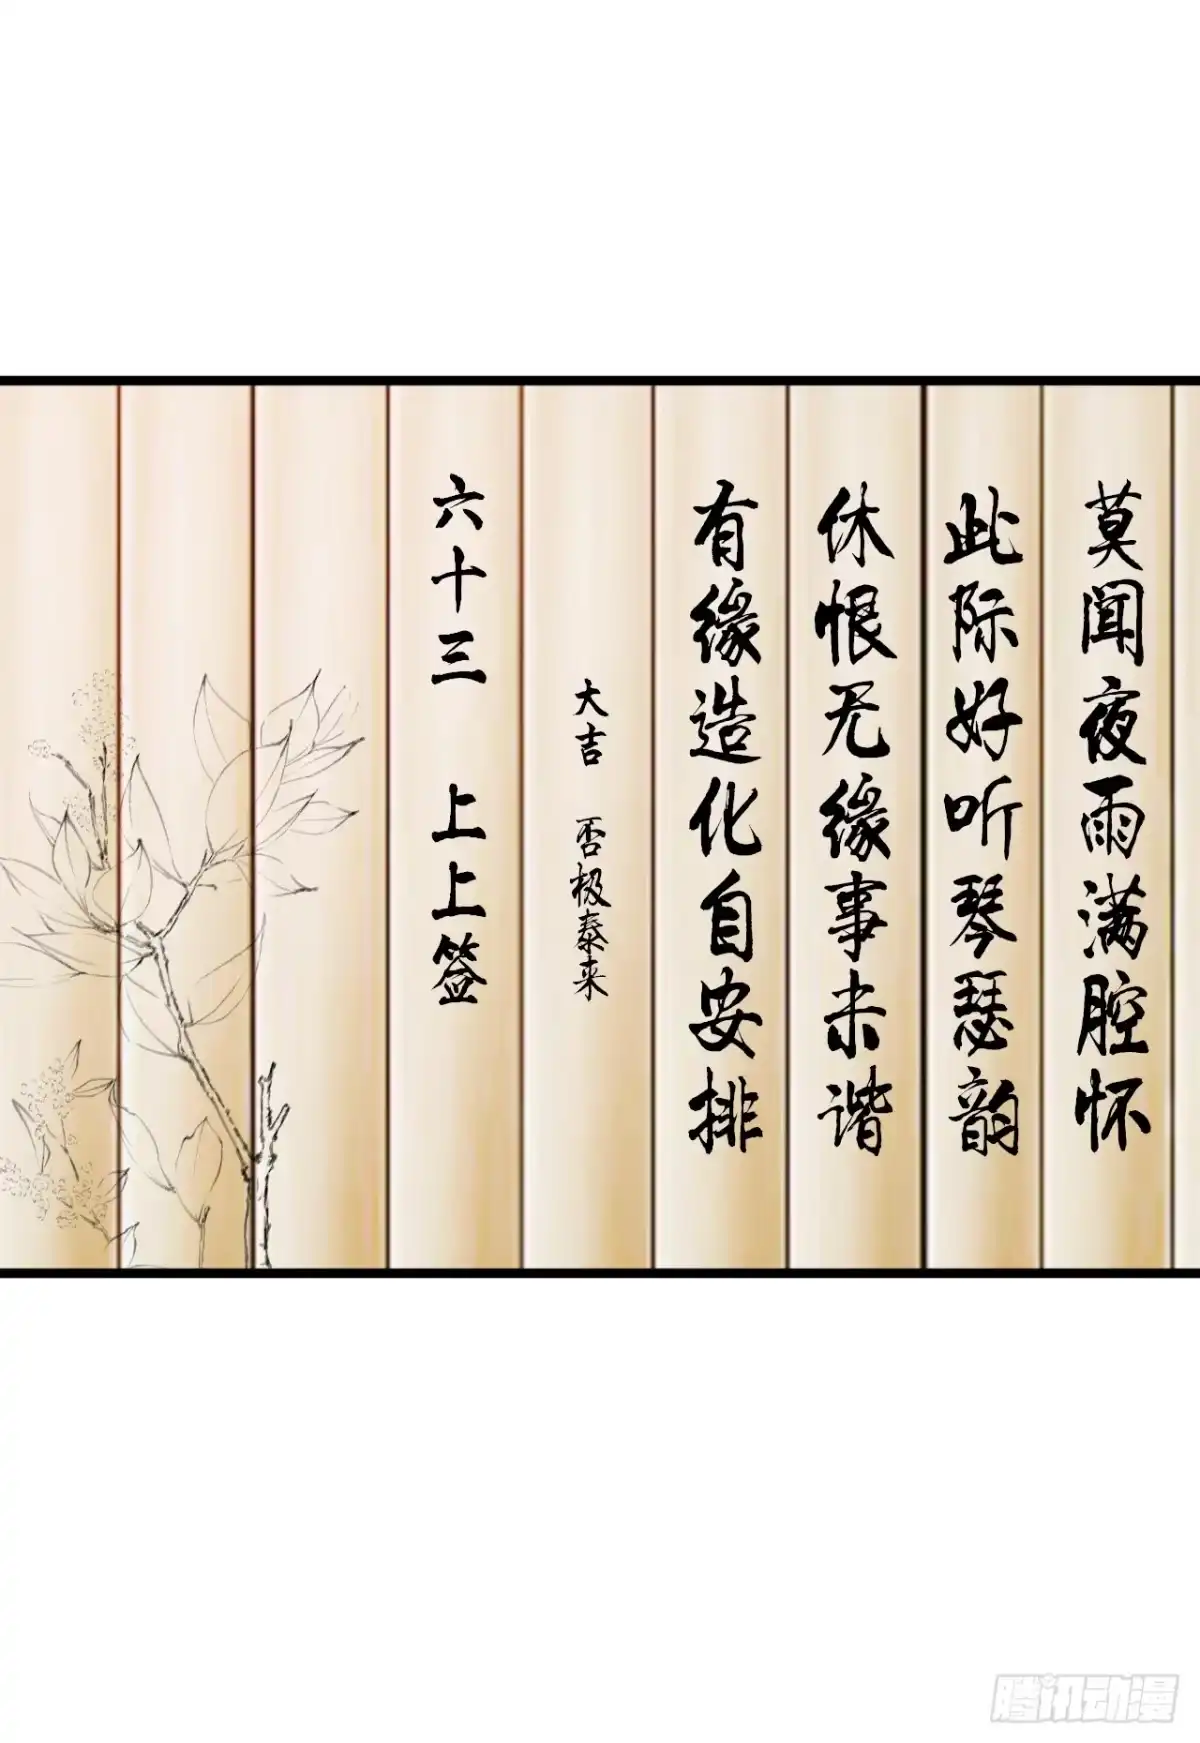 莫闻夜雨满腔怀
此际好听琴瑟韵
休恨无缘事未谐
有缘造化自安排
大吉 否极泰来
六十三 上上签
腾讯动漫